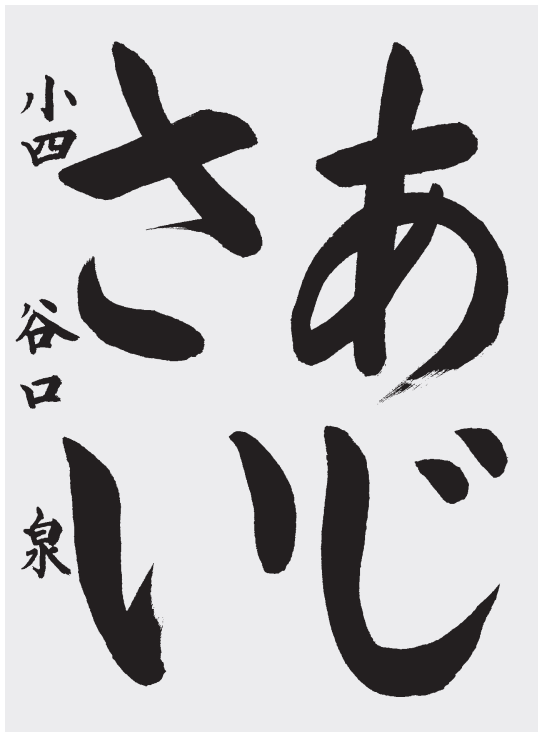 あじ
さい
小四 谷口 泉